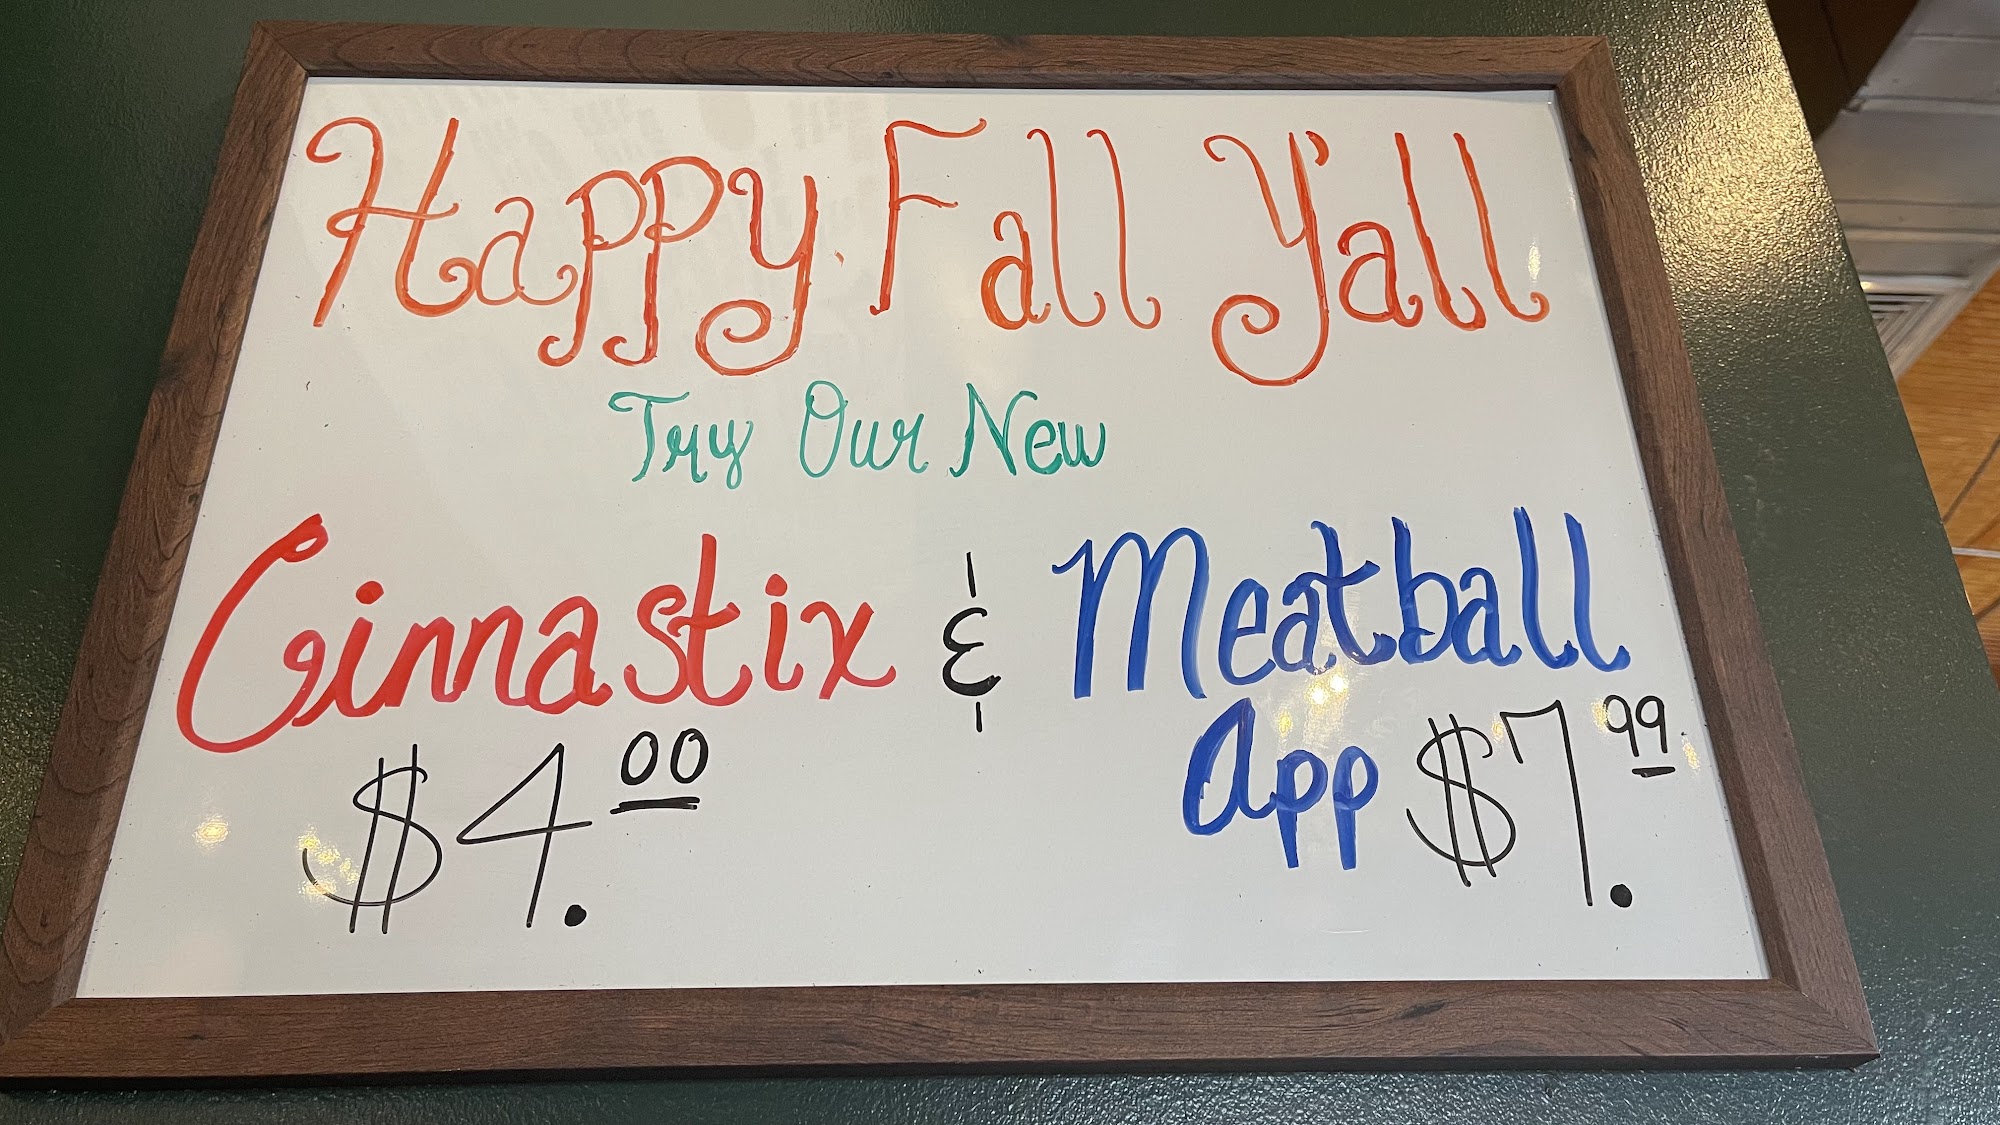 Happy Fall Y'all
Try Our New
Cinnastix & Meatball
$4.00 App $7.99